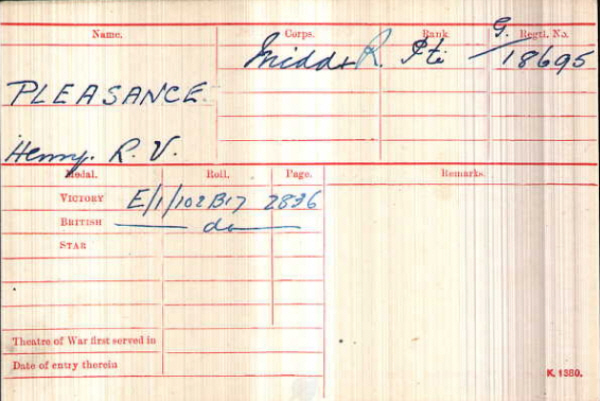 Name. Corps. Rank. Regtl. No.
Midd'x R. Pte G/18695
PLEASANCE.
Henry. R. V.
Medal. Roll. Page. Remarks.
VICTORY E/1/102B17 2836
BRITISH do
STAR
Theatre of War first served in
Date of entry therein
K. 1380.